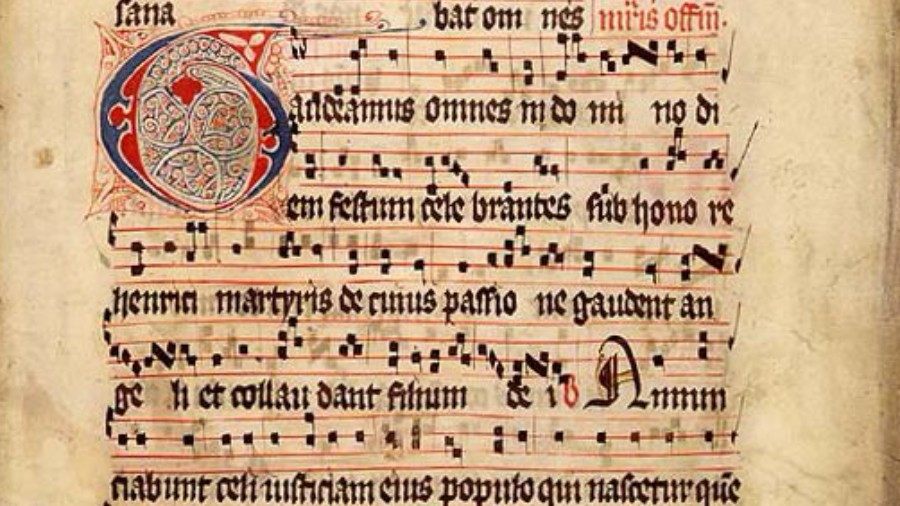 sana bat om nes
Gaudeamus omnes in do mi no di
em festum cele brantes sub hono re
henrici martyris de cuius passio ne gaudent an
ge li et collau dant filium de i V Annun
ciabunt celi iusticiam eius populo qui nascetur que